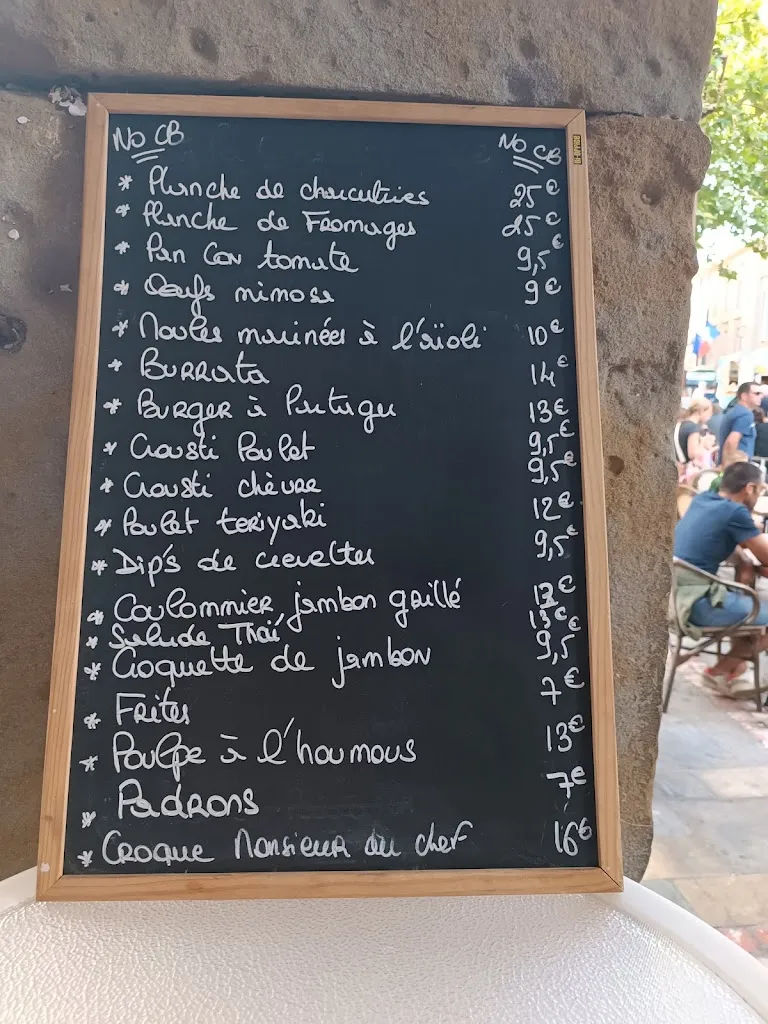 NO CB NO CB
* Planche de charcutries 25€
* Planche de Fromages 25€
* Pan Con tomate 9,5€
* Oeufs mimosa 9€
* Moules marinées à l'aïoli 10€
* BURRATA 14€
* BURGER à Partager 13€
* Crousti Poulet 9,5€
* Crousti chèvre 9,5€
* Poulet teriyaki 12€
* Dip's de crevettes 9,5€
* Coulommier, jambon grillé 12€
* Salade Thaï 13€
* Croquette de jambon 9,5€
* Frites 7€
* Poulpe à l'houmous 13€
* PADRONS 7€
* CROQUE Monsieur du chef 16€